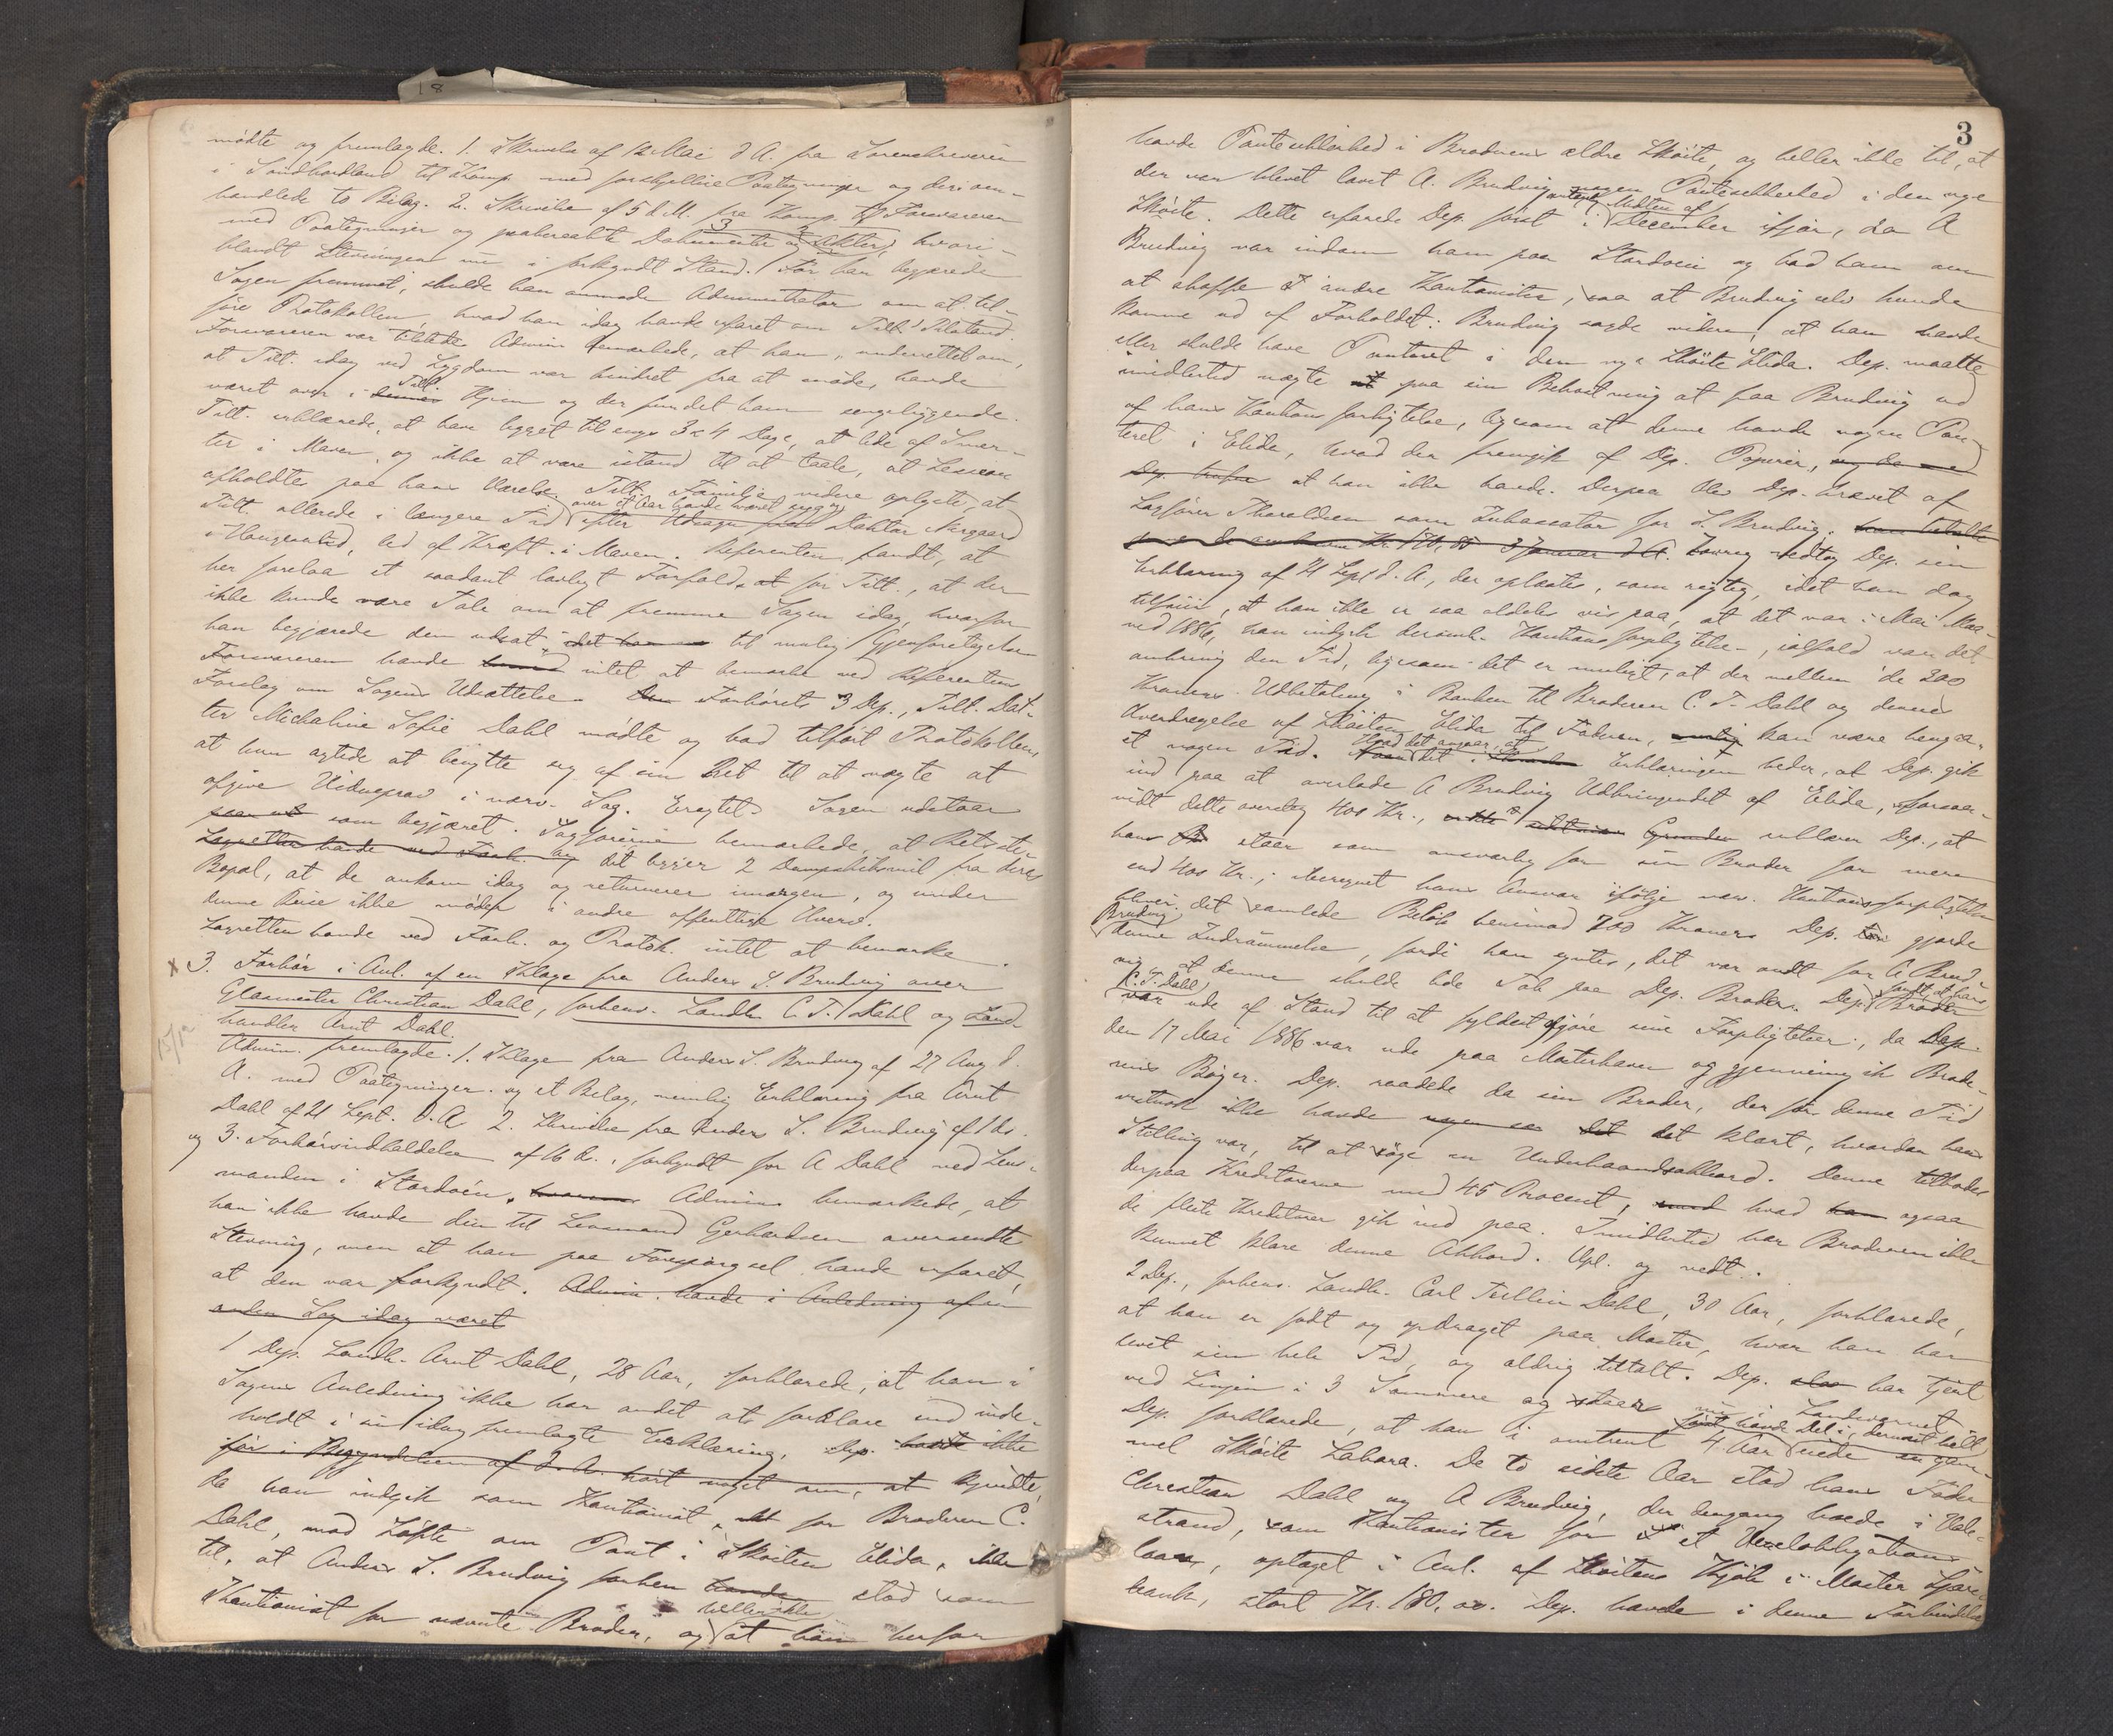 18
mödte og fremlagde. 1. Skrivelse af 12 Mai d A. fra Sorenskriveren
i Söndhordland til Komp. med forskjellige Paategninger og deri om-
handlede to Bilag. 2. Skrivelse af 5 d. M. fra Komp. til Forsvareren
med Paategninger og paaberaabte Dokumenter og Akter, hvori-
blandt Stevningen nu i forkyndt Stand. Før han begjærede
Sagen fremmet, skulde han anmode Administrator om at til-
före Protokollen, hvad han idag havde erfaret om Tilt.s Tilstand.
Forsvareren var tilstede. Admin. bemærkede, at han, underrettet om,
at Tilt. idag ved Sygdom var hindret fra at möde, havde
været over i Tilt. Hjem og der fundet ham sengeliggende.
Tilt. erklærede, at have ligget til sengs 3 a 4 Dage, at lide af Smer-
ter i Maven, og ikke at være istand til at taale, at Lægen
opholdtes paa hans Værelse. Tilt. Familie videre oplyste, at
over et Aar havde været syg og
Tilt. allerede i længere Tid efter Udsagn fra Doktor Nergaard
i Haugesund, led af Kræft i Maven. Referenten fandt, at
her forelaa et saadant lovligt Forfald for Tilt., at der
ikke kunde være Tale om at fremme Sagen idag, hvorfor
han begjærede den udsat til mulig Gjenforetagelse
Forsvareren havde intet at bemærke ved Referentens
Forslag om Sagens Udsættelse. Forhörets 3 Dep., Tilt. Dat-
ter Michaline Sofie Dahl mödte og bad tilfört Protokollen,
at hun agtede at benytte sig af sin Ret til at nægte at
afgive Vidneprov i nærv. Sag. Eragtet. Sagen udstaar
som begjæret. Sagförerne bemærkede, at Retsste-
Lagretten havde ved Forh. og det ligger 2 Dampskibsmil fra deres
Bopæl, at de ankom idag og returnerer imorgen, og under
denne Reise ikke möder i andre offentlige Hverv.
Lagretten havde ved Forh. og Protok. intet at bemærke.
x 3. Forhör i Anl. af en Klage fra Anders S. Brudvig over
Glasmester Christian Dahl, forhenv. Landh. C. T. Dahl og Land-
handler Arnt Dahl.
15/12
Admin. fremlagde. 1. Klage fra Anders S. Brudvig af 27 Aug d.
A. med Paategninger og et Bilag, nemlig Erklæring fra Arnt
Dahl af 21 Sept. d. A 2. Skrivelse fra Anders S. Brudvig af 1 ds.
og 3. Forhörsindkaldelse af 16 d., forkyndt for A Dahl ved Lens-
manden i Stordöen. Admin. bemærkede, at
han ikke havde den til Lensmand Gerhardsen oversendte
Stevning, men at han paa Forespörgsel havde erfaret,
at den var forkyndt. Admin. havde i Anledning af en
anden Sag idag været
1 Dep. Landh. Arnt Dahl, 28 Aar, forklarede, at han i
Sagens Anledning ikke har andet at forklare end inde-
holdt i sin idag fremlagte Erklæring. Dep. havde ikke
för i Begyndelsen af d. A. hört noget om, at kjendte,
da han indgik som Kautionist for Broderen C.
Dahl, mod Löfte om Pant i Sköiten Elida, ikke
til, at Anders S. Brudvig forhen havde stod som
heller ikke
Kautionist for nævnte Broder, og at han herfor
3
havde Pantesikkerhed i Broderens ældre Sköite, og heller ikke til, at
der var blevet lovet A. Brudvig nogen Pantesikkerhed i den nye
Midten af
Sköite. Dette erfarede Dep. först i December ifjor, da A
Brudvig var indom ham paa Stordöen og bad ham om
at skaffe andre Kautionister, saa at Brudvig selv kunde
komme ud af Forholdet. Brudvig sagde videre, at han havde
eller skulde have Panteret i den nye Sköite Elida. Dep. maatte
imidlertid nægte paa sin Bekostning at faa Brudvig ud
af hans Kautionsforpligtelse, ligesom at denne havde nogen Pan-
teret i Elida, hvad der fremgik af Dep. Papirer,
at han ikke havde. Derpaa blev Dep. krævet af
Sagförer Thoraldsen som Inkassator for S. Brudvig. han betalte
3 Januar d A. Forövrig vedtog Dep. sin
Erklæring af 21 Sept d. A., der oplæstes, som rigtig, idet han dog
tilföier, at han ikke er saa aldeles vis paa, at det var i Mai Maa-
ned 1886, han indgik deromh. Kautionsforpligtelse, ialfald var det
omkring den Tid, ligesom det er muligt, at der mellem de 300
Kroners Udbetaling i Banken til Broderen C. T. Dahl og dennes
Overdragelse af Sköiten Elida til Faderen, kan være hengaa-
Hvad det angaar, at
et nogen Tid. det i Erklæringen heder, at Dep. gik
ind paa at overlade A Brudvig Udbringendet af Elida, forsaa-
vidt dette oversteg 400 Kr., Grunden erklærer Dep., at
han staar som ansvarlig for sin Broder for mere
end 400 Kr.; iberegnet hans Ansvar ifölge nærv. Kautionsforpligtelse
bliver det samlede Belöb henimod 700 Kroner. Dep. gjorde
Brudvig
denne Indrömmelse, fordi han syntes, det var ondt for A Brud-
vig, at denne skulde lide Tab paa Dep. Broder. Dep. fandt, at hans Broder
C. T. Dahl
var ude af Stand til at fyldestgjöre sine Forpligtelser, da Dep.
den 17 Mai 1886 var ude paa Mosterhavn og gjennemgik Brode-
rens Böger. Dep. raadede da sin Broder, der för denne Tid
vistnok ikke havde det klart, hvordan hans
Stilling var, til at söge en Underhaandsakkord. Denne tilböd
derpaa Kreditorerne med 45 Procent, hvad ogsaa
de fleste Kreditorer gik ind paa. Imidlertid har Broderen ikke
kunnet klare denne Akkord. Opl. og vedt.
2 Dep., forhenv. Landh. Carl Tullin Dahl, 30 Aar, forklarede,
at han er födt og opdraget paa Moster, hvor han har
levet sin hele Tid, og aldrig tiltalt. Dep. har tjent
ved Linjen i 3 Sommere og staar nu i Landeværnet.
först havde Del i, dernæst helt
Dep. forklarede, at han i omtrent 4 Aar eiede en gam-
mel Sköite Labora. De to sidste Aar stod hans Fader
Christian Dahl og A Brudvig, der dengang boede i Vale-
strand, som Kautionister for et Vexelobligations-
laan, optaget i Anl. af Sköitens Kjöb i Moster Spare-
bank, stort Kr. 180,00. Dep. havde i denne Forbindelse